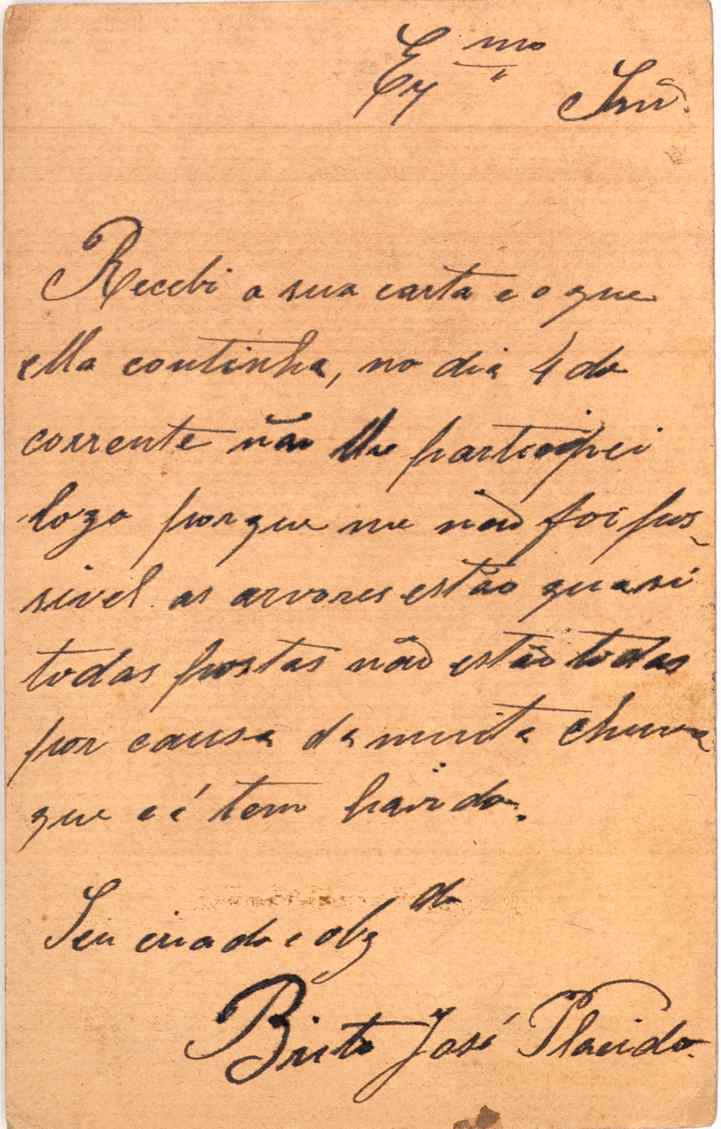 Exmo Snr.
Recebi a sua carta e o que
ella continha, no dia 4 do
corrente não lhe participei
logo porque me não foi pos-
sivel as arvores estão quasi
todas postas não estão todas
por causa da muita chuva
que cá tem havido.
Seu criado e obgdo
Brito José Placido.